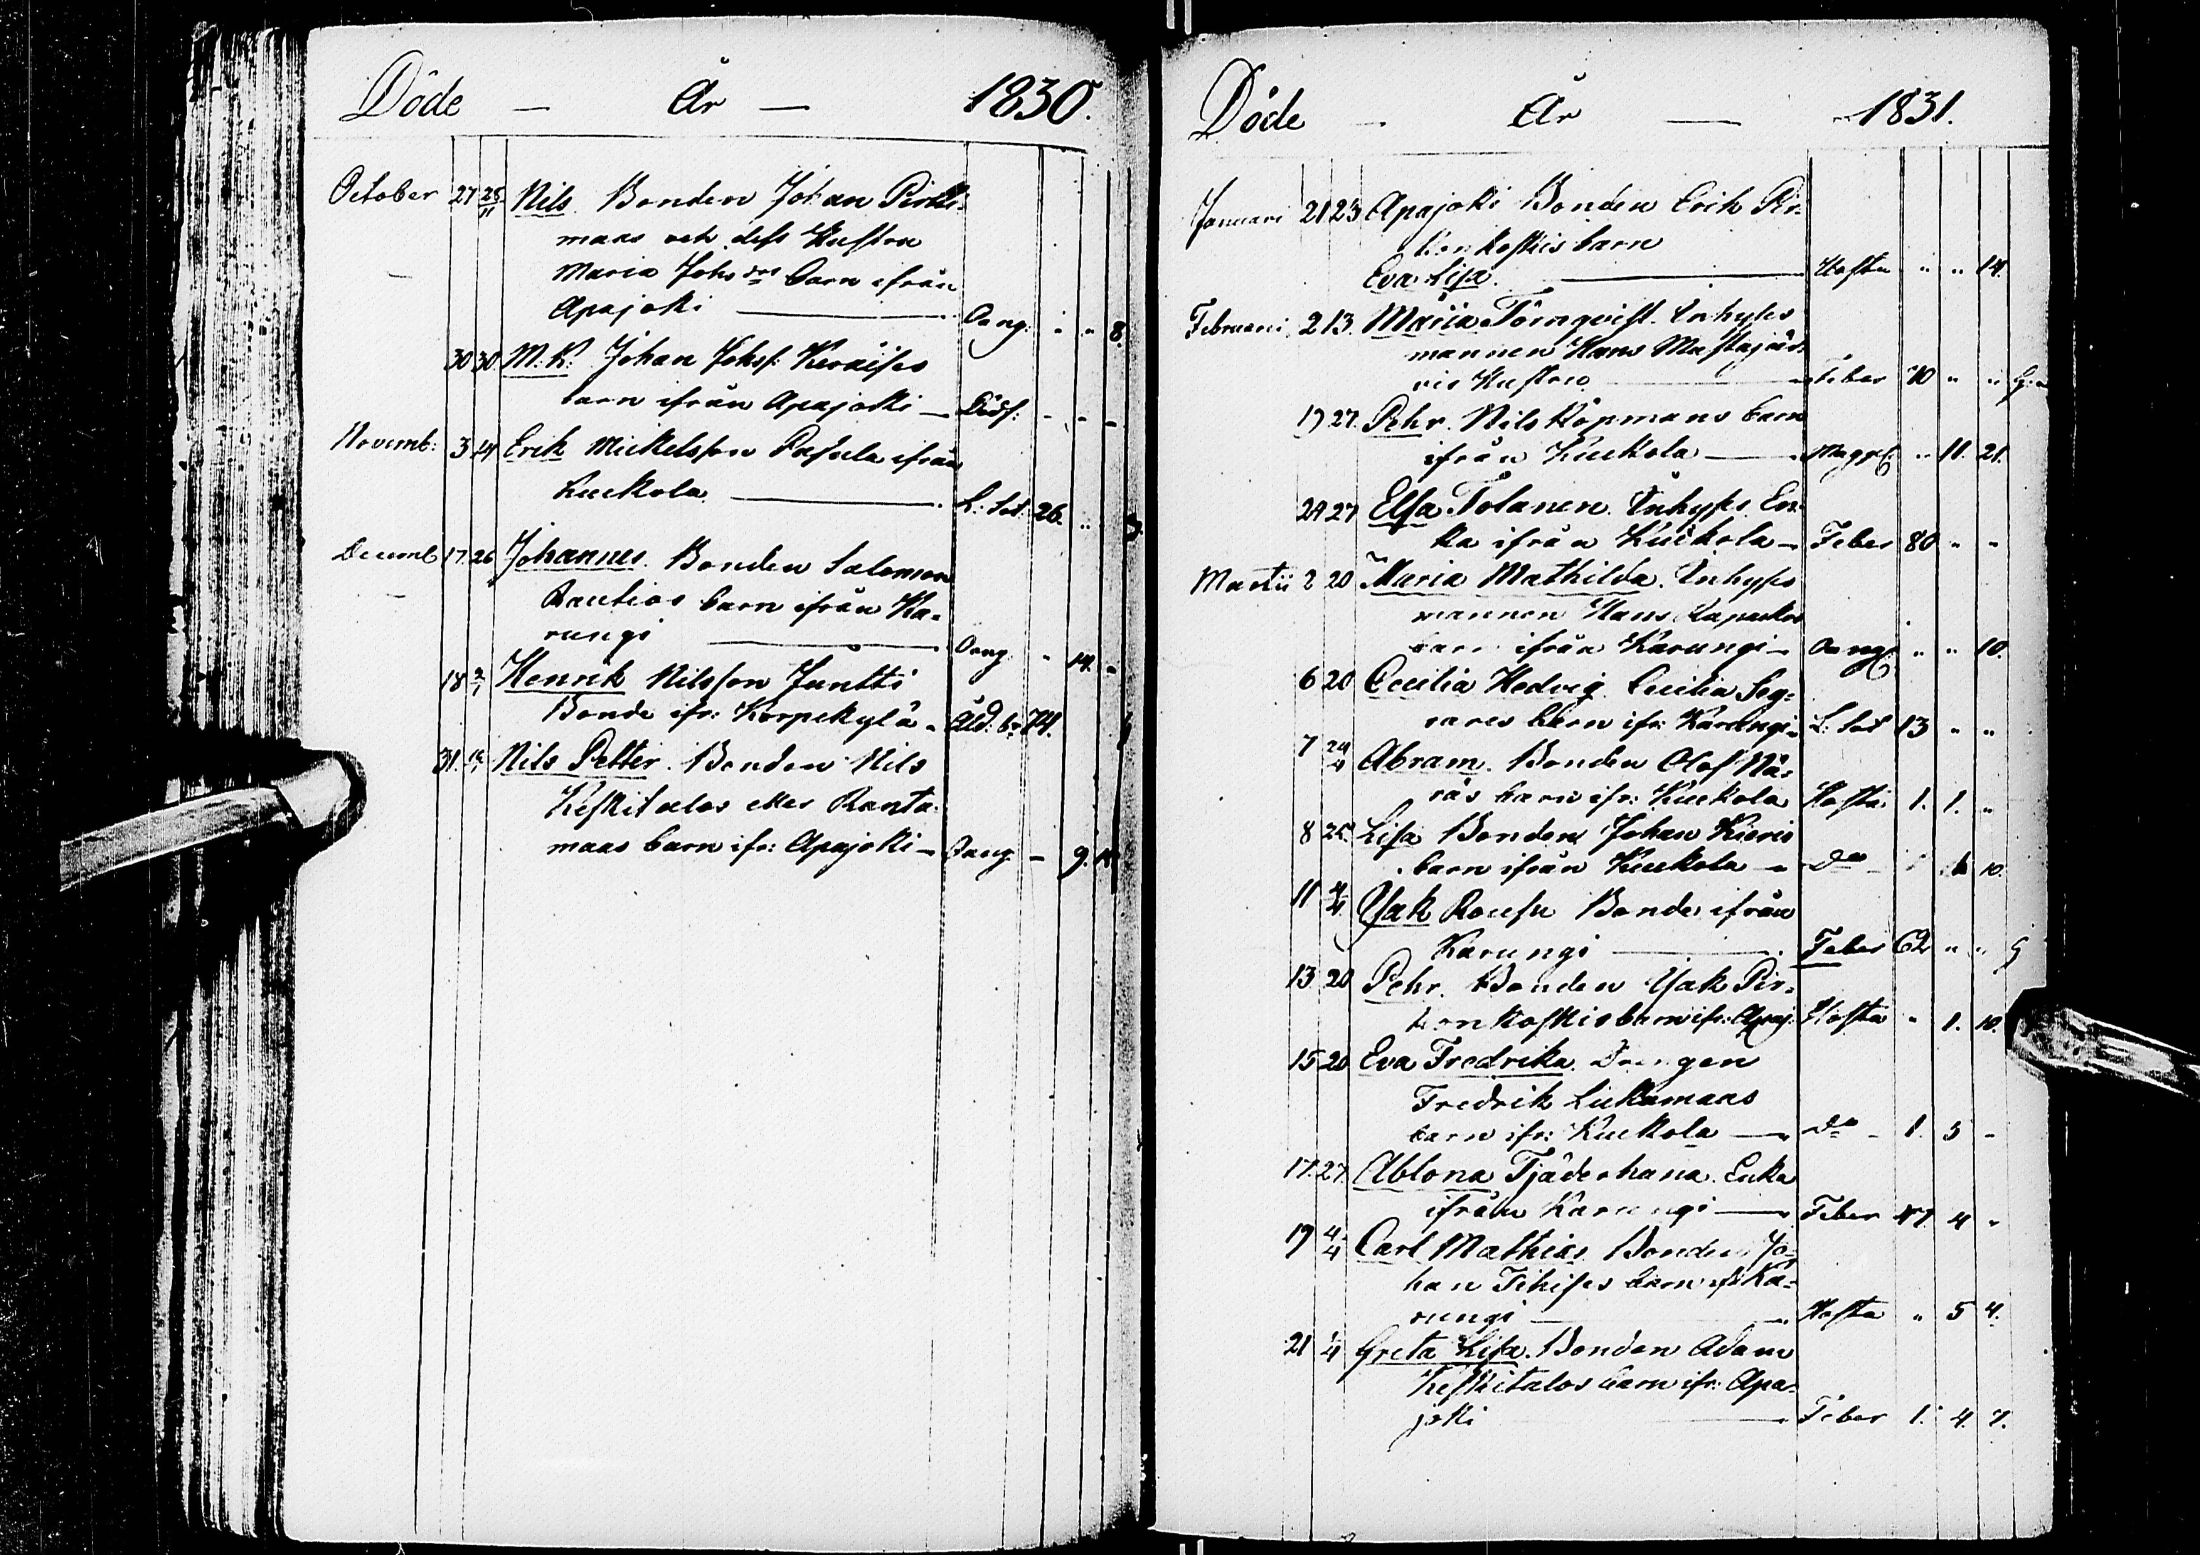 Döde — År — 1830.
October 27 25/11 Nils. Bonden Johan Pirtti-
maas och dess Hustru
Maria Johs drs barn ifrån
Apajoki — Oang: " " 8.
30 30 M. K. Johan Johss: Keräises
barn ifrån Apajoki — Dödf: - - -
Novemb: 3 14 Erik Mickelsson Pasula ifrån
Kuckola — L: sot: 26. "
Decemb 17 26 Johannes. Bonden Salomon
Rautios barn ifrån Ka-
rungi — Oang - 14. -
18 2/1 Henrik Nilsson Juntti
Bonde ifr: Korpikylä - Åld: br 74.
31. Nils Petter. Bonden Nils
Keskitalos eller Ranta-
maas barn ifr: Apajoki — Oang - 9.
Döde - År — 1831.
Januari 21 23 Apajoki Bonden Erik Pir-
konkoskis barn
Eva Lisa. — Hosta " " 14.
Februari 2 13. Maria Törnqvist. Inhyses
mannen Hans Mastajär-
vis Hustru — Feber 70 " "
19 27. Pehr. Nils Köpmans barn
ifrån Kuckola — Magpl: " 11. 21.
24 27 Elsa Tolanen. Inhyses En-
ka ifrån Kuckola — Feber 80 " "
Martii 2 20 Maria Mathilda. Inhyses
mannen Hans
barn ifrån Karungi — Oang: " " 10.
6 20 Cecilia Hedvig. Cecilia Seg-
rares barn ifr: Karungi - L: sot 13 " "
7 24/4 Abram. Bonden Olof Nä-
räs barn ifr: Kuckola Hosta: 1. 1. "
8 25 Lisa Bonden Johan Kieris
barn ifrån Kuckola — Do - 10.
11 4/4 Isak Rousu Bonde ifrån
Karungi — Feber 62 " "
13 20 Pehr. Bonden Isak Pir-
konkoskis barn ifr: Apaj: Hosta " 1. 10.
15 20 Eva Fredrika. Drengen
Fredrik Luckumaas
barn ifr: Kuckola — Do - 1. 5 -
17. 27. Ablona Tjäderhana. Enka
ifrån Karungi — Feber 47 4 "
19 4/4 Carl Mathias. Bonden Jo-
han Fihises barn ifr: Ka-
rungi — Hosta " 5 4.
21 4 Greta Lisa. Bonden Adam
Keskitalos barn ifr: Apa-
joki — Feber 1. 4. 7.